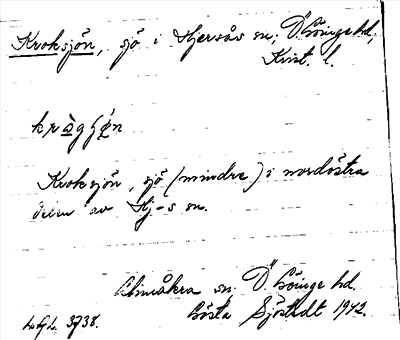 Kroksjön, sjö i Hjersås sn; Ö. Göinge hd,
Krist. l.
Kroksjön, sjö (mindre) i nordöstra
delen av Hj-s sn.
Glimåkra sn Ö. Göinge hd.
Gösta Sjöstedt 1942.
LGL. 3738.